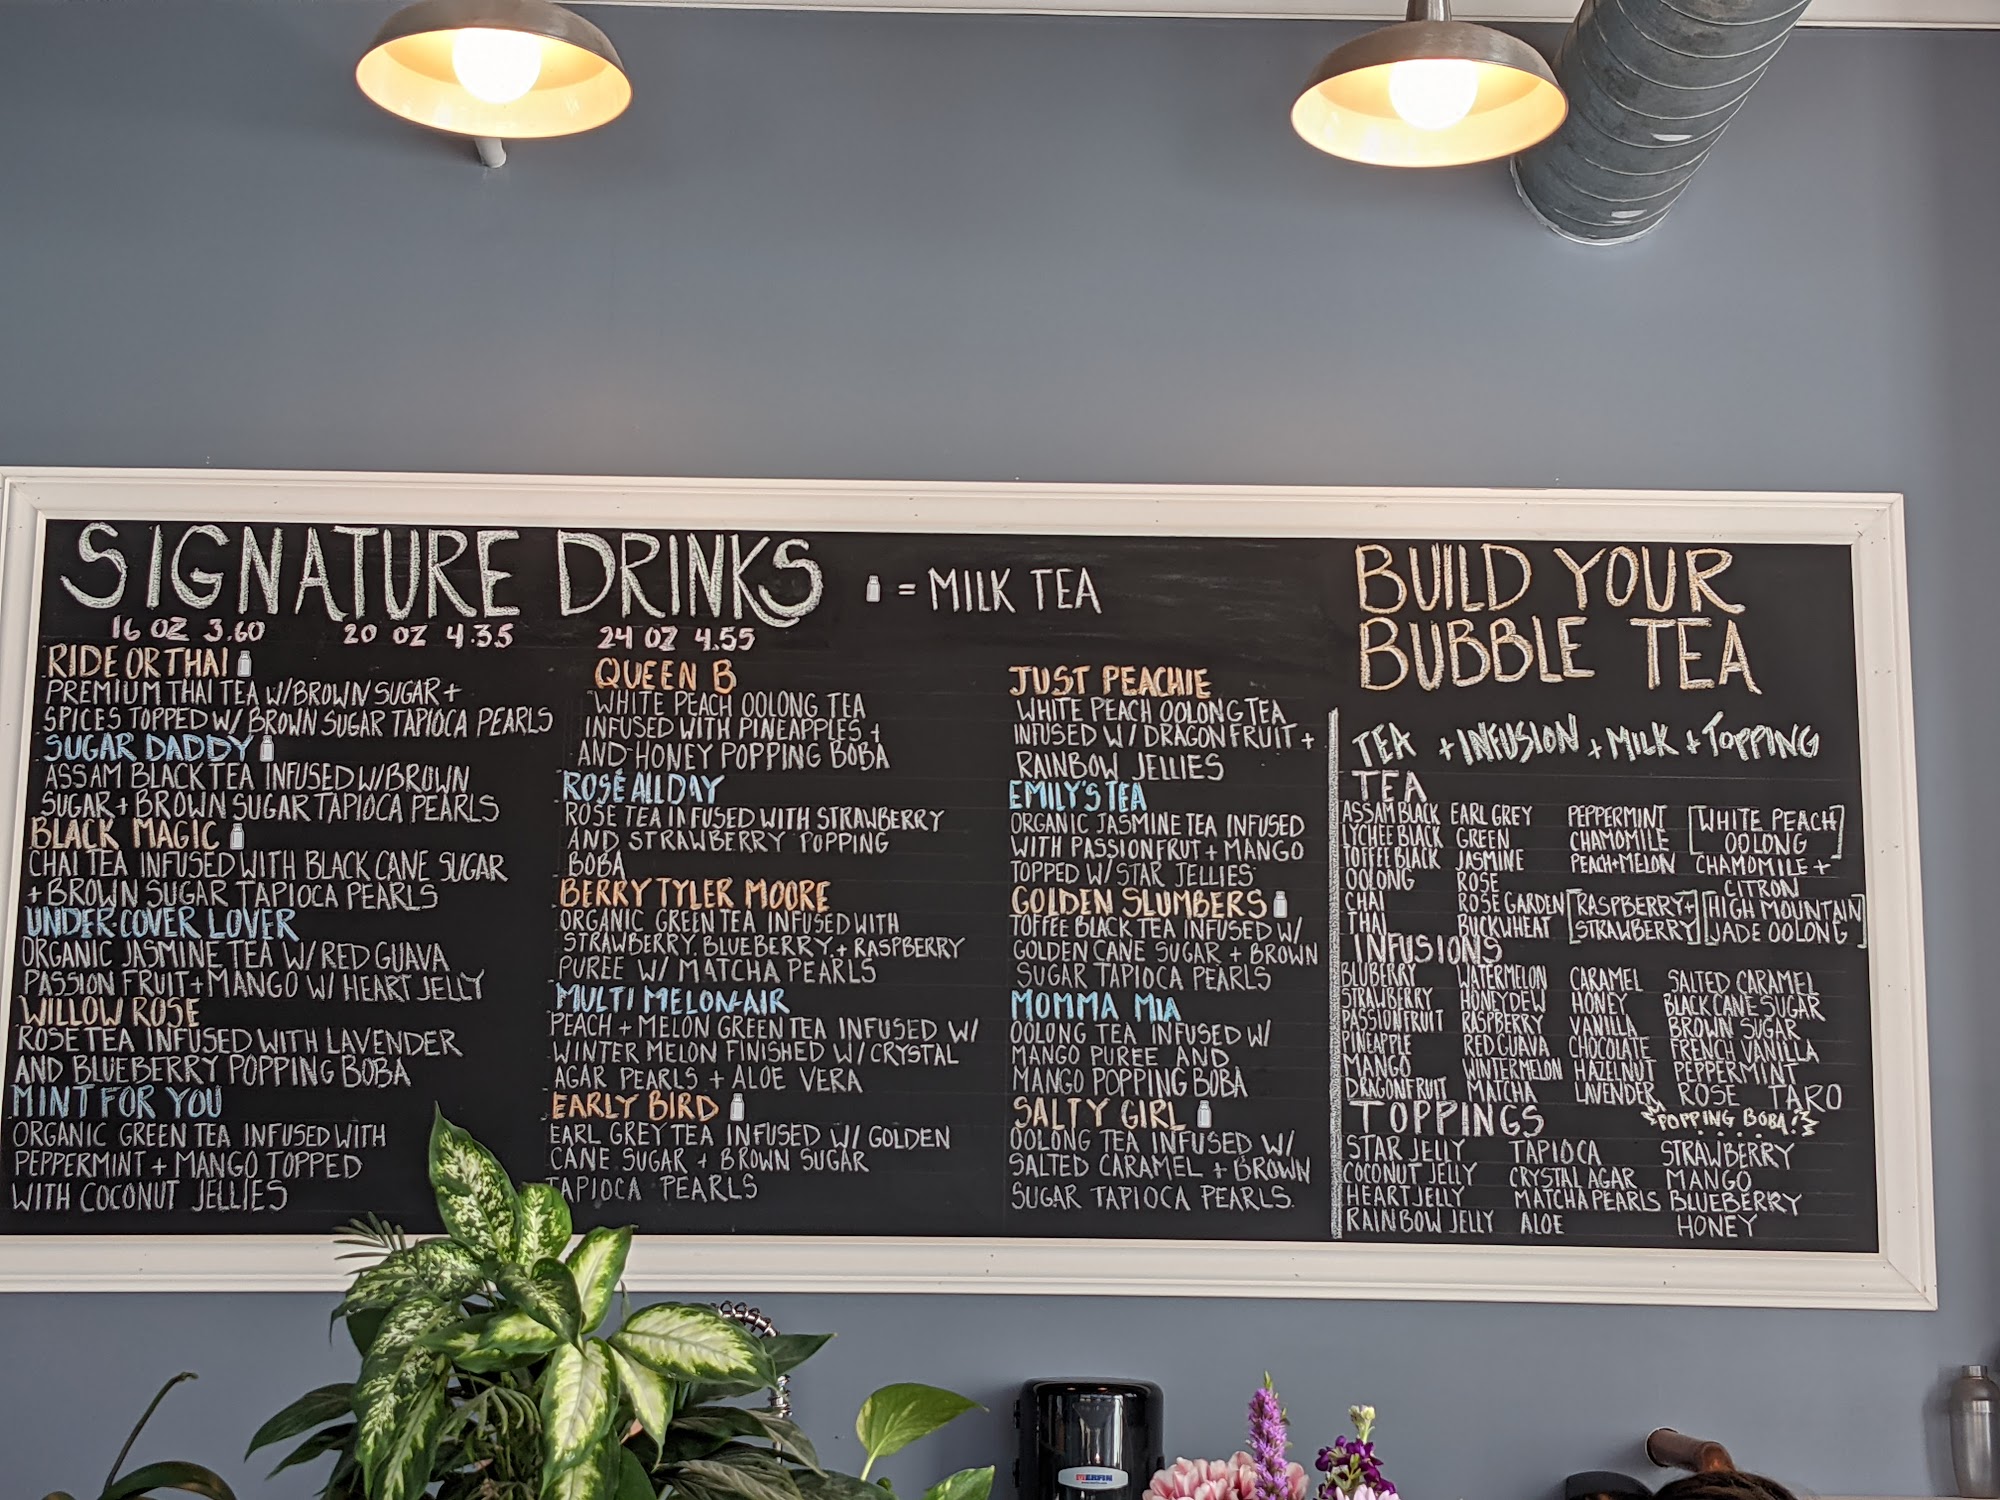 SIGNATURE DRINKS
= MILK TEA
16 OZ 3.60 20 OZ 4.35 24 OZ 4.55
RIDE OR THAI
PREMIUM THAI TEA W/BROWN SUGAR +
SPICES TOPPED W/ BROWN SUGAR TAPIOCA PEARLS
SUGAR DADDY
ASSAM BLACK TEA INFUSED W/BROWN
SUGAR + BROWN SUGAR TAPIOCA PEARLS
BLACK MAGIC
CHAI TEA INFUSED WITH BLACK CANE SUGAR
+ BROWN SUGAR TAPIOCA PEARLS
UNDER-COVER LOVER
ORGANIC JASMINE TEA W/ RED GUAVA
PASSION FRUIT + MANGO W/ HEART JELLY
WILLOW ROSE
ROSE TEA INFUSED WITH LAVENDER
AND BLUEBERRY POPPING BOBA
MINT FOR YOU
ORGANIC GREEN TEA INFUSED WITH
PEPPERMINT + MANGO TOPPED
WITH COCONUT JELLIES
QUEEN B
WHITE PEACH OOLONG TEA
INFUSED WITH PINEAPPLES +
AND HONEY POPPING BOBA
ROSÉ ALL DAY
ROSE TEA INFUSED WITH STRAWBERRY
AND STRAWBERRY POPPING
BOBA
BERRY TYLER MOORE
ORGANIC GREEN TEA INFUSED WITH
STRAWBERRY, BLUEBERRY, + RASPBERRY
PUREE W/ MATCHA PEARLS
MULTI MELON-AIR
PEACH + MELON GREEN TEA INFUSED W/
WINTER MELON FINISHED W/ CRYSTAL
AGAR PEARLS + ALOE VERA
EARLY BIRD
EARL GREY TEA INFUSED W/ GOLDEN
CANE SUGAR + BROWN SUGAR
TAPIOCA PEARLS
JUST PEACHIE
WHITE PEACH OOLONG TEA
INFUSED W/ DRAGONFRUIT +
RAINBOW JELLIES
EMILY'S TEA
ORGANIC JASMINE TEA INFUSED
WITH PASSIONFRUT + MANGO
TOPPED W/ STAR JELLIES
GOLDEN SLUMBERS
TOFFEE BLACK TEA INFUSED W/
GOLDEN CANE SUGAR + BROWN
SUGAR TAPIOCA PEARLS
MOMMA MIA
OOLONG TEA INFUSED W/
MANGO PUREE AND
MANGO POPPING BOBA
SALTY GIRL
OOLONG TEA INFUSED W/
SALTED CARAMEL + BROWN
SUGAR TAPIOCA PEARLS.
BUILD YOUR
BUBBLE TEA
TEA + INFUSION + MILK + TOPPING
TEA
ASSAM BLACK EARL GREY PEPPERMINT [WHITE PEACH
LYCHEE BLACK GREEN CHAMOMILE OOLONG]
TOFFEE BLACK JASMINE PEACH+MELON CHAMOMILE +
OOLONG ROSE CITRON
CHAI ROSE GARDEN [RASPBERRY+ [HIGH MOUNTAIN
THAI BUCKWHEAT STRAWBERRY] JADE OOLONG]
INFUSIONS
BLUBERRY WATERMELON CARAMEL SALTED CARAMEL
STRAWBERRY HONEYDEW HONEY BLACK CANE SUGAR
PASSIONFRUIT RASPBERRY VANILLA BROWN SUGAR
PINEAPPLE RED GUAVA CHOCOLATE FRENCH VANILLA
MANGO WINTERMELON HAZELNUT PEPPERMINT
DRAGONFRUIT MATCHA LAVENDER ROSE TARO
TOPPINGS POPPING BOBA!
STAR JELLY TAPIOCA STRAWBERRY
COCONUT JELLY CRYSTAL AGAR MANGO
HEART JELLY MATCHA PEARLS BLUEBERRY
RAINBOW JELLY ALOE HONEY